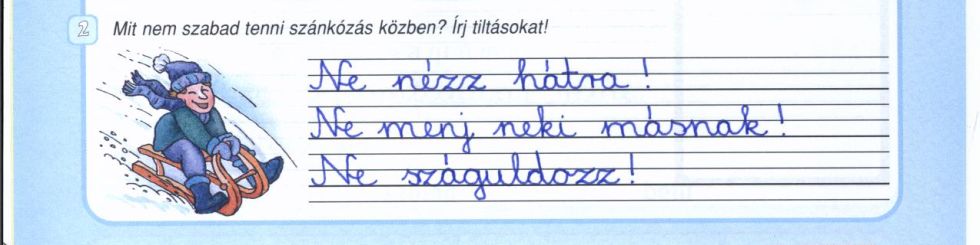 2 Mit nem szabad tenni szánkózás közben? Írj tiltásokat!
Ne nézz hátra!
Ne menj neki másnak!
Ne száguldozz!